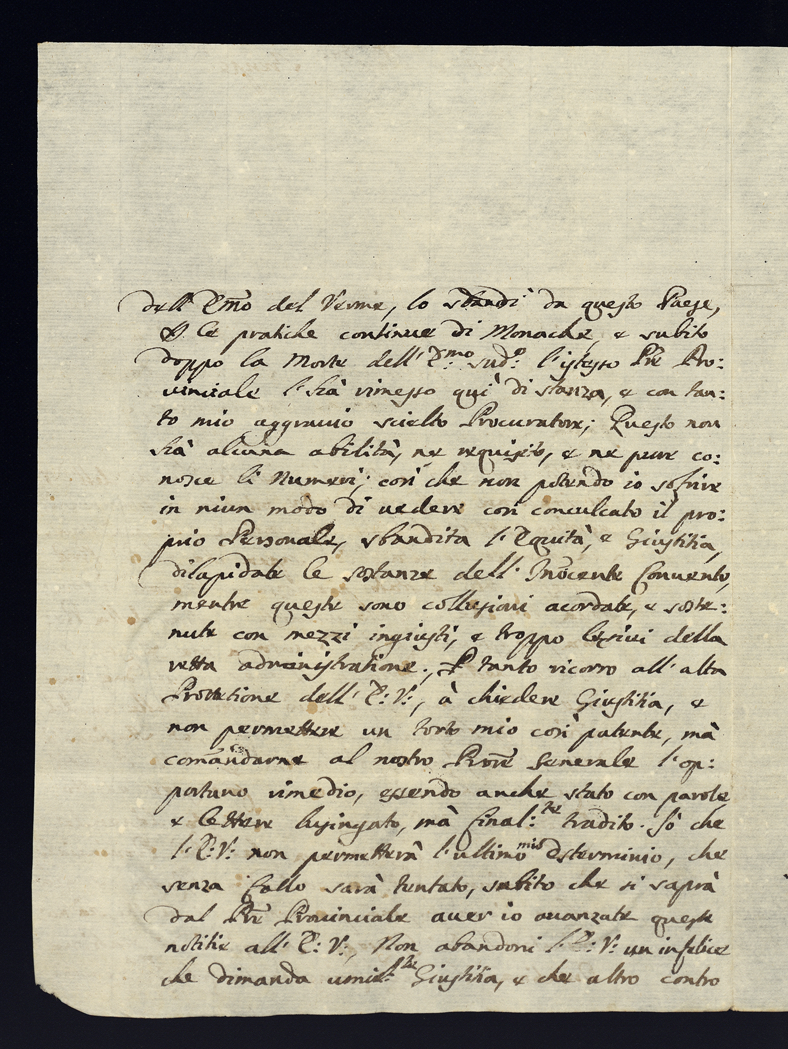 dell' E͞mo del Verme, lo sbandì da questo Paese,
P. le pratiche continue di Monache, e subito
doppo la Morte dell' E:mo sud:o l'istesso P͞re Pro:
vinciale l'hà rimesso quì di stanza, e con tan:
to mio aggravio scielto Procuratore; Questo non
hà alcuna abilità, ne requisito, e ne pure co:
nosce li Numeri; così che non potendo io sofrire
in niun modo di vedere così conculcato il pro:
prio Personale, sbandita l'Equità, e Giustitia,
dilapidate le sostanze dell' Inocente Convento,
mentre queste sono collusioni acordate, e soste:
nute con mezzi ingiusti, e troppo lesivi della
retta administratione; P tanto ricorro all' alta
Protetione dell' E: V:, à chiedere Giustitia, e
non permettere un torto mio così patente, mà
comandarne al nostro Priore Generale l'op:
portuno rimedio, essendo anche stato con parole,
e lettere lusingato, mà final:te tradito. Sò che
l'E: V: non permetterà l'ultimo mio dsterminio, che
senza fallo sarà tentato, subito che si saprà
dal P͞re Provinciale aver io avanzate queste
notitie all' E: V:, Non abandoni l'E: V: un infelice
che dimanda umil:te Giustitia, e che altro contro